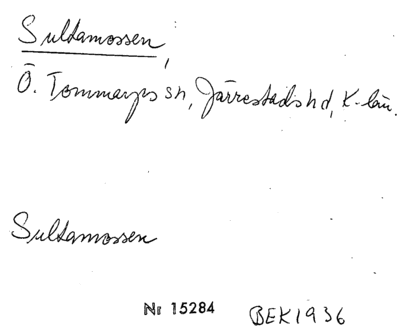 Sultamossen,
Ö. Tommarps sn, Järrestads hd, K-län.
Sultamossen
Nr 15284 BEK1936